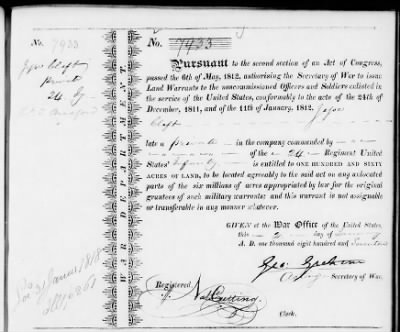 No. 7933
No. 7933
Pursuant to the second section of an Act of Congress,
passed the 6th of May, 1812, authorising the Secretary of War to issue
Land Warrants to the noncommissioned Officers and Soldiers enlisted in
the service of the United States, conformably to the acts of the 24th of
December, 1811, and of the 11th of January, 1812, Jesse
Cleft
late a private in the company commended by
of the 24 Regiment United
States' Infantry is entitled to ONE HUNDRED AND SIXTY
ACRES OF LAND, to be located agreeably to the said act on any unlocated
parts of the six millions of acres appropriated by law for the original
grantees of such military warrants; and this warrant is not assignable
or transferable in any manner whatever.
GIVEN at the War Office of the United States,
this 2 day of January
A. D. one thousand eight hundred and
Geo: Graham
Secretary of War.
Registered
Nat Cutting
Clerk.
WAR DEPARTMENT
private
24